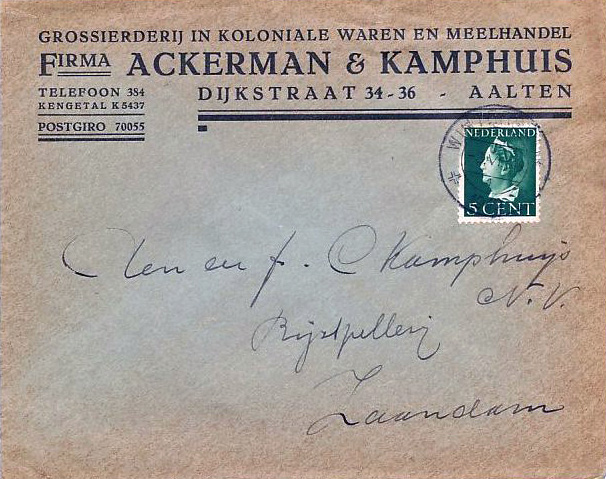 GROSSIERDERIJ IN KOLONIALE WAREN EN MEELHANDEL
FIRMA ACKERMAN & KAMPHUIS
TELEFOON 384
KENGETAL K 5437
DIJKSTRAAT 34-36 - AALTEN
POSTGIRO 70055
NEDERLAND
5 CENT
en f. C Kamphuys
N.V.
Rijstpellerij
Zaandam